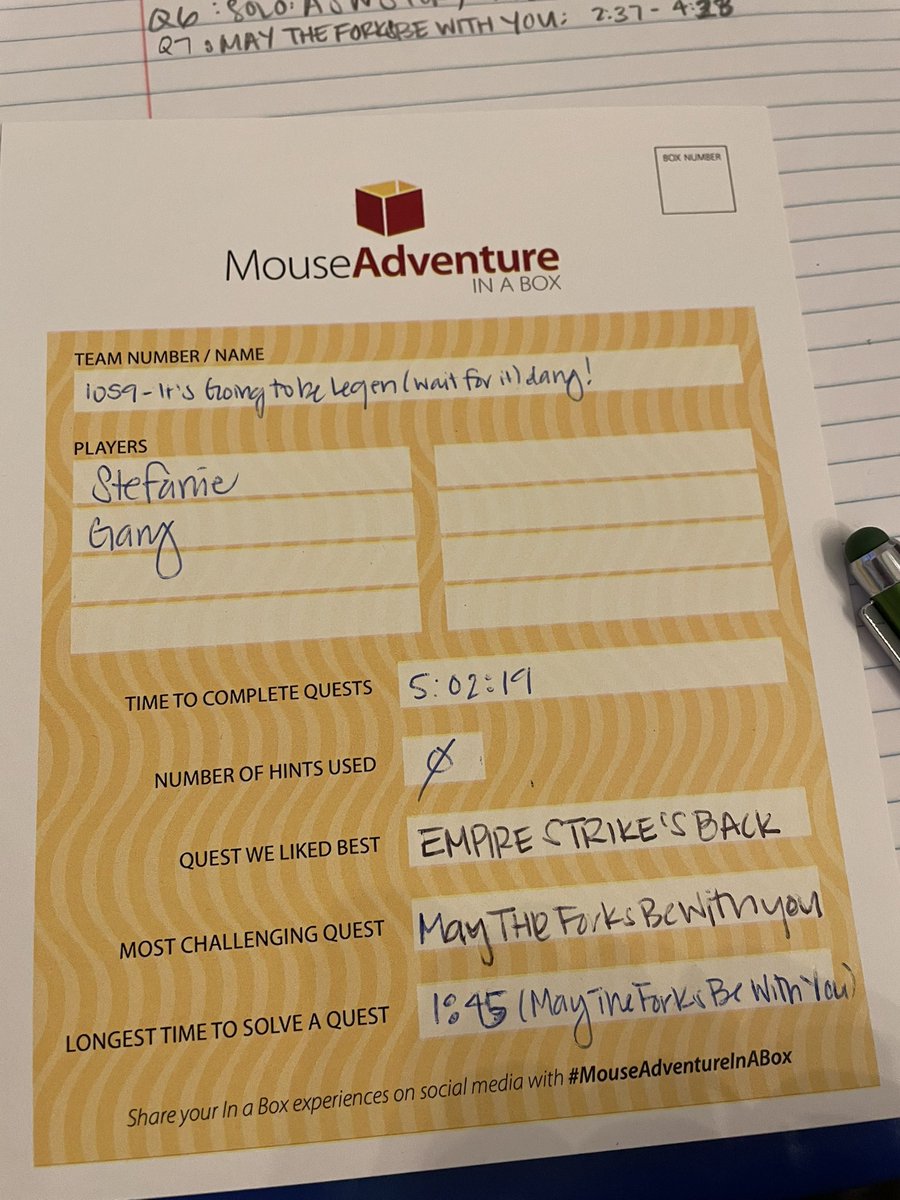 Q6: SOLO: A
Q7: MAY THE FORKS BE WITH YOU: 2:37 - 4:28
BOX NUMBER
MouseAdventure
IN A BOX
TEAM NUMBER / NAME
1059 - It's Going to be Legen (wait for it) dary!
PLAYERS
Stefanie
Gary
TIME TO COMPLETE QUESTS 5:02:19
NUMBER OF HINTS USED Ø
QUEST WE LIKED BEST EMPIRE STRIKE'S BACK
MOST CHALLENGING QUEST May THe Forks Be With you
LONGEST TIME TO SOLVE A QUEST 1:45 (May The Forks Be With You)
Share your In a Box experiences on social media with #MouseAdventureInABox